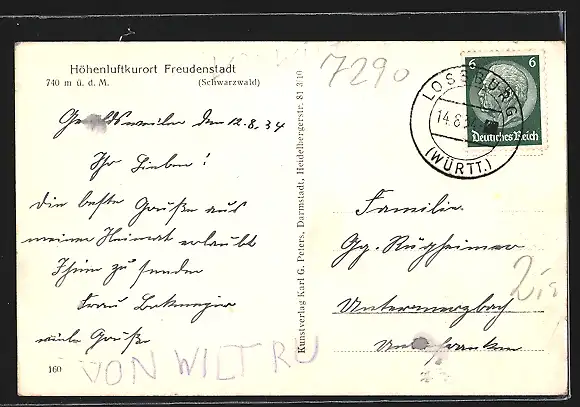 Höhenluftkurort Freudenstadt
740 m ü. d. M. (Schwarzwald)
den 12.8.34
Ihr Lieben!
Die besten Grüße aus
meiner Heimat erlaubt
Ihnen zu senden
Frau
viele Grüße
160
VON WILTRU
Kunstverlag Karl G. Peters, Darmstadt, Heidelbergerstr. 81 3 10
7290
LOSSBURG
14.8.
(WÜRTT.)
6 6
Deutsches Reich
Familie
Gg. Rügheimer
Untermerzbach
Unterfranken